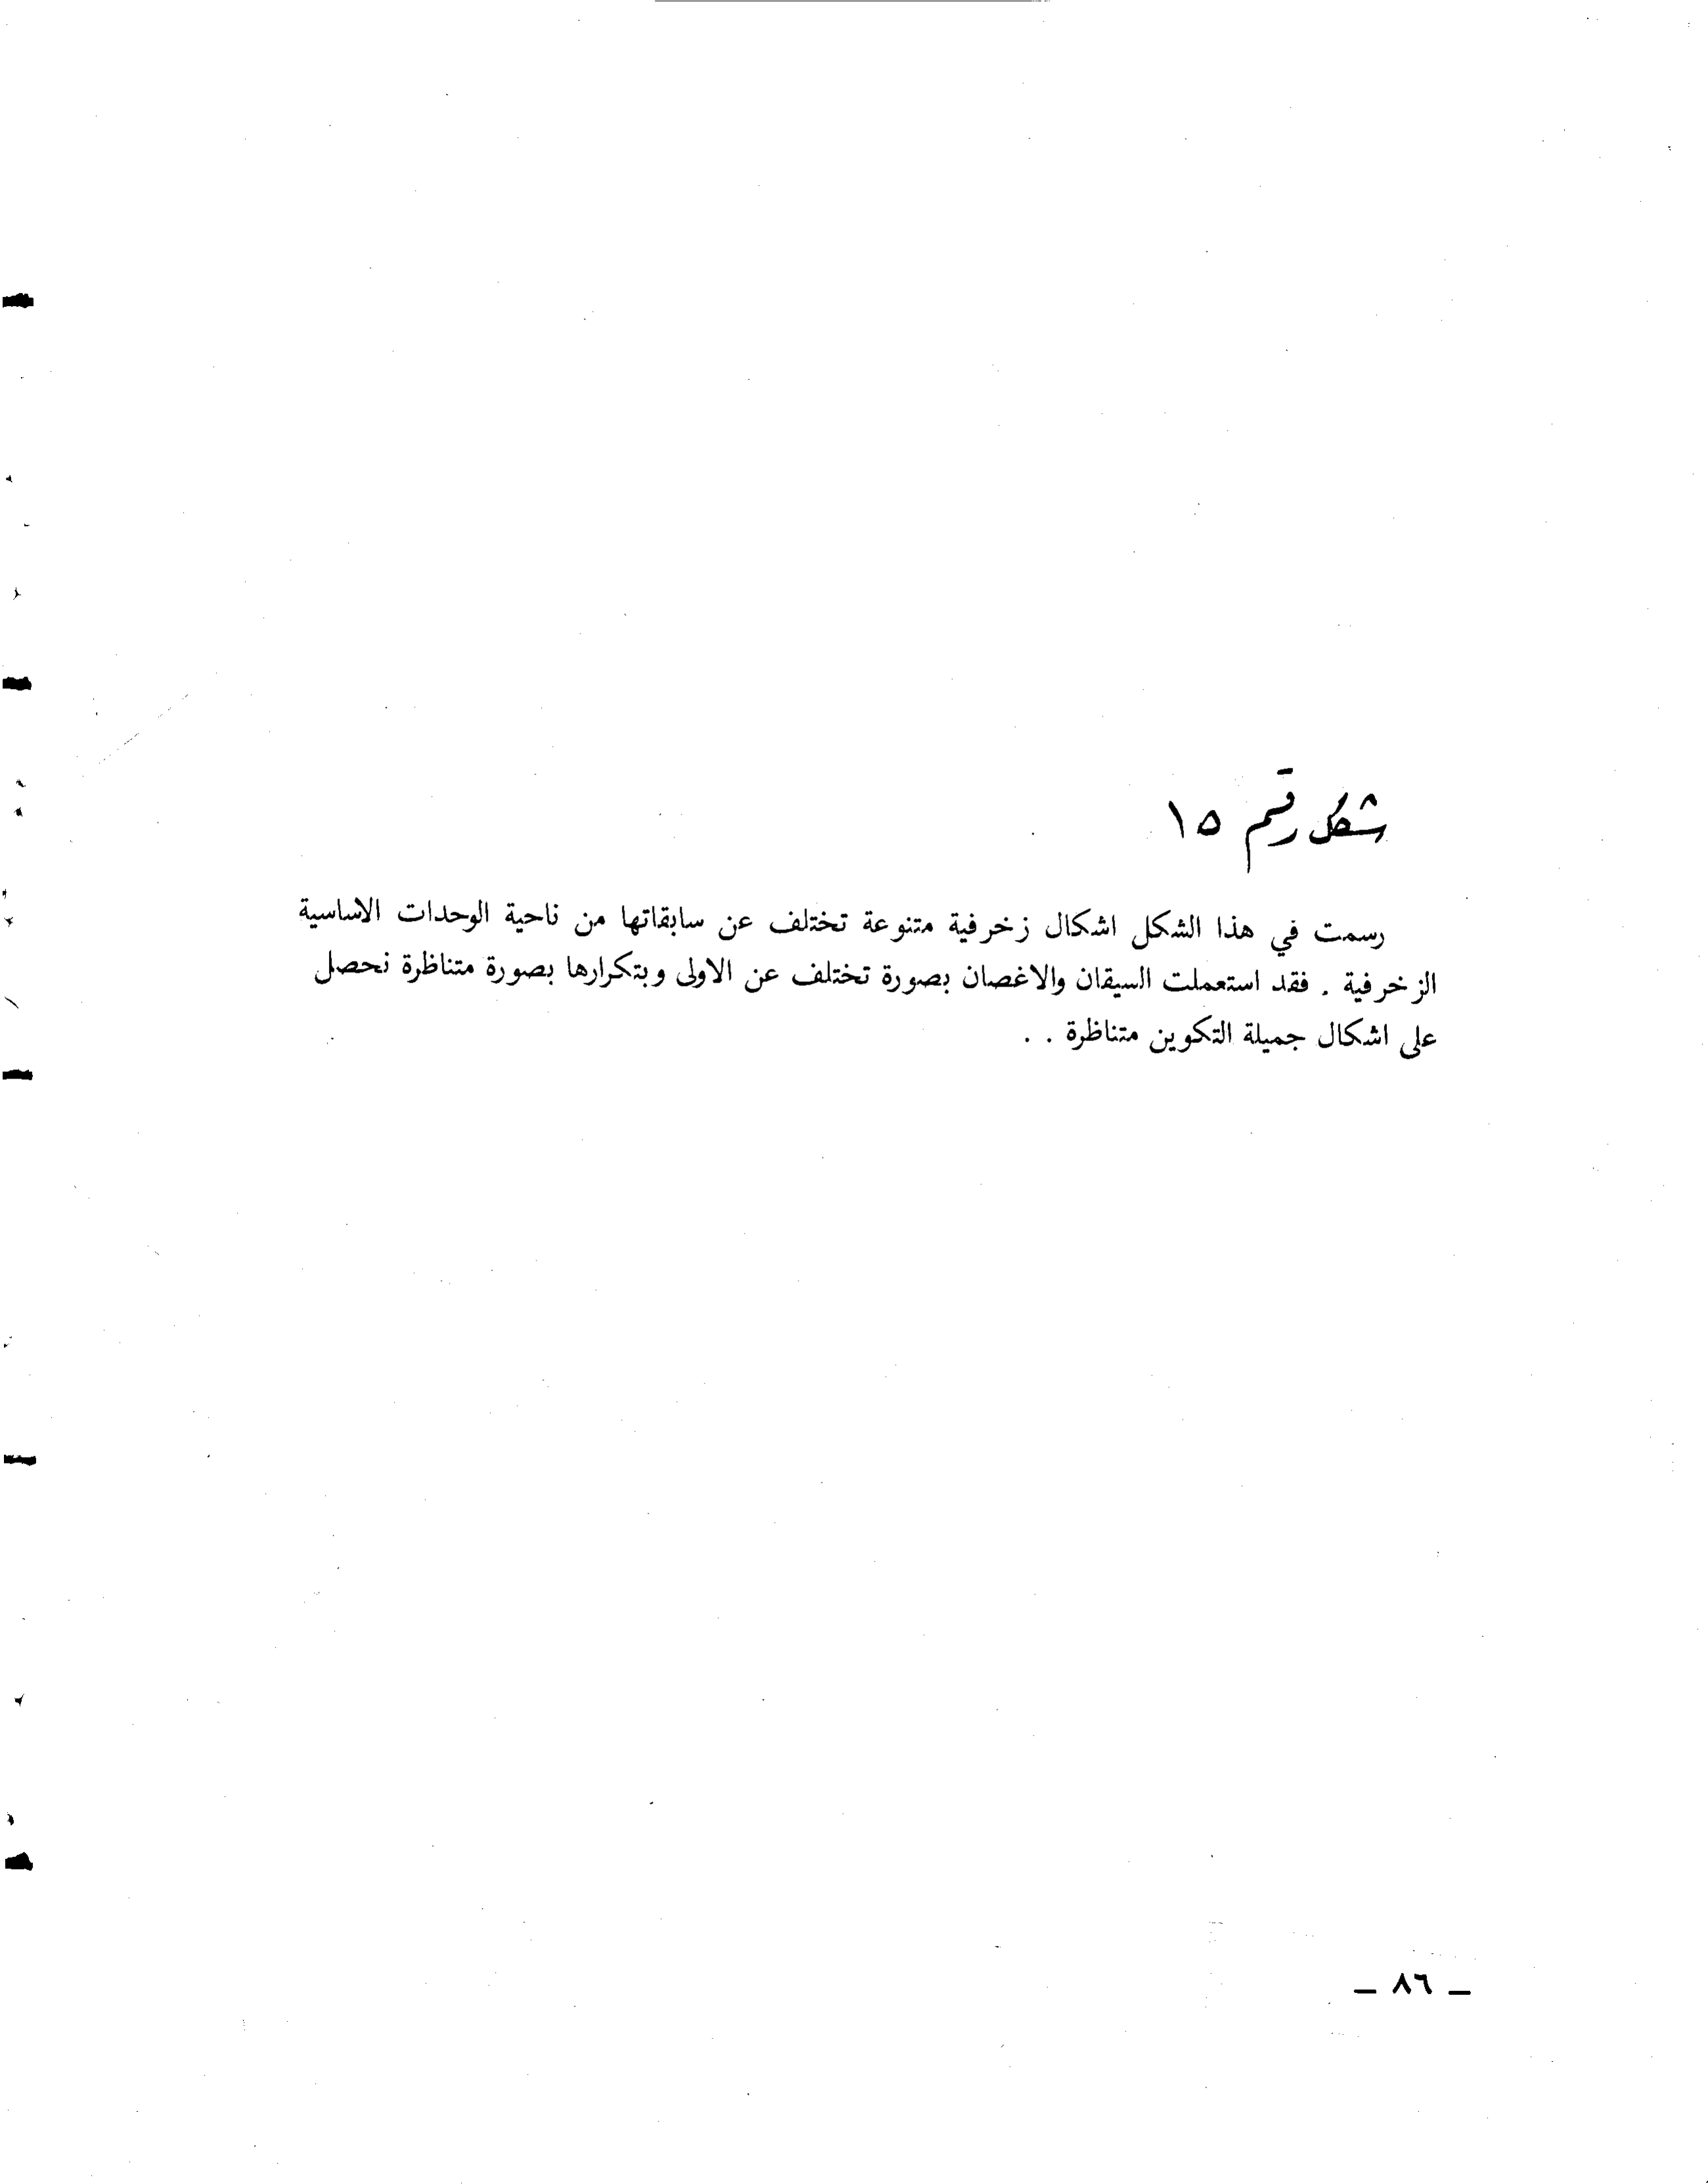 شكل رقم ١٥
رسمت في هذا الشكل اشكال زخرفية متنوعة تختلف عن سابقاتها من ناحية الوحدات الاساسية
الزخرفية . فقد استعملت السيقان والاغصان بصورة تختلف عن الاولى وبتكرارها بصورة متناظرة نحصل
على اشكال جميلة التكوين متناظرة . .
_ ٨٦ _